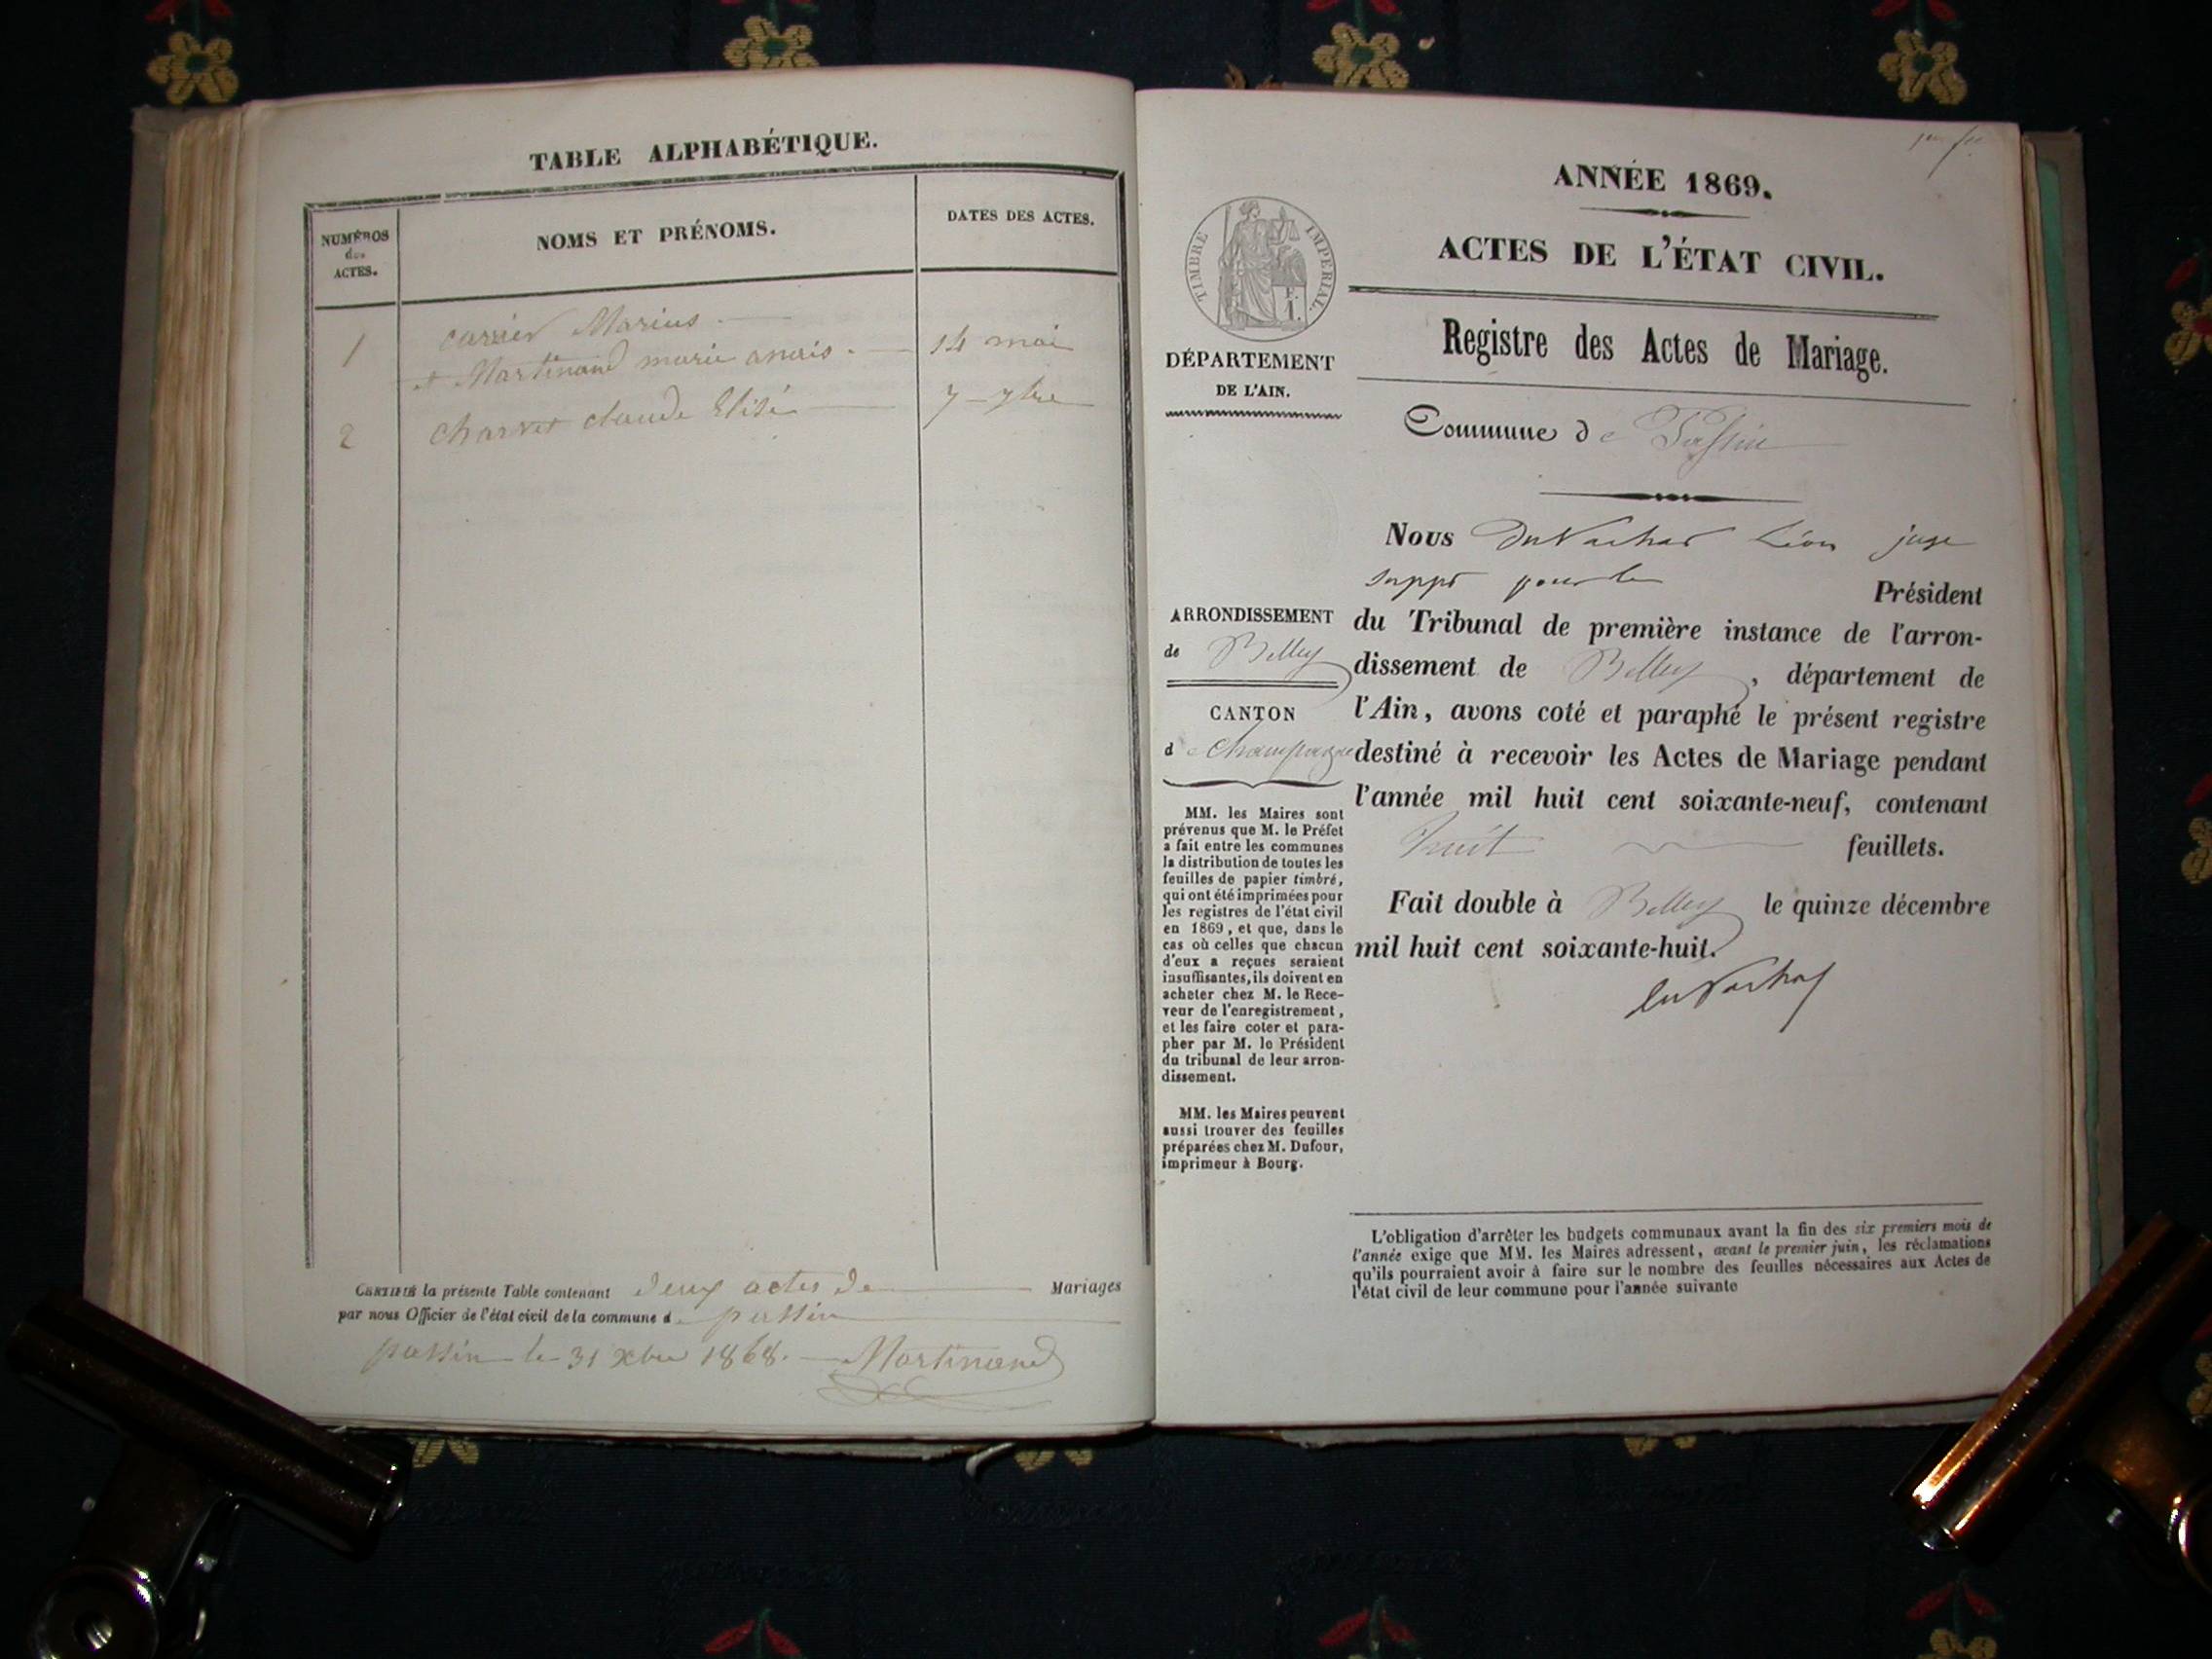 TABLE ALPHABÉTIQUE.
NUMÉROS
des
ACTES.
NOMS ET PRÉNOMS.
DATES DES ACTES.
1
carrier Marius
et Martinand marie anais.
14 mai
2
charvet claude Elisé
7 - 7bre
CERTIFIÉ la présente Table contenant deux actes de Mariages
par nous Officier de l'état civil de la commune de passin
passin le 31 xbre 1868. Martinand
ANNÉE 1869.
ACTES DE L'ÉTAT CIVIL.
TIMBRE IMPÉRIAL.
F.
1.
DÉPARTEMENT
DE L'AIN.
Registre des Actes de Mariage.
Commune de Passin
ARRONDISSEMENT
de Belley
CANTON
de Champagne
MM. les Maires sont
prévenus que M. le Préfet
a fait entre les communes
la distribution de toutes les
feuilles de papier timbré,
qui ont été imprimées pour
les registres de l'état civil
en 1869, et que, dans le
cas où celles que chacun
d'eux a reçues seraient
insuffisantes, ils doivent en
acheter chez M. le Rece-
veur de l'enregistrement,
et les faire coter et para-
pher par M. le Président
du tribunal de leur arron-
dissement.
MM. les Maires peuvent
aussi trouver des feuilles
préparées chez M. Dufour,
imprimeur à Bourg.
Nous Léon juge
suppt pour le Président
du Tribunal de première instance de l'arron-
dissement de Belley, département de
l'Ain, avons coté et paraphé le présent registre
destiné à recevoir les Actes de Mariage pendant
l'année mil huit cent soixante-neuf, contenant
huit feuillets.
Fait double à Belley le quinze décembre
mil huit cent soixante-huit.
L'obligation d'arrêter les budgets communaux avant la fin des six premiers mois de
l'année exige que MM. les Maires adressent, avant le premier juin, les réclamations
qu'ils pourraient avoir à faire sur le nombre des feuilles nécessaires aux Actes de
l'état civil de leur commune pour l'année suivante